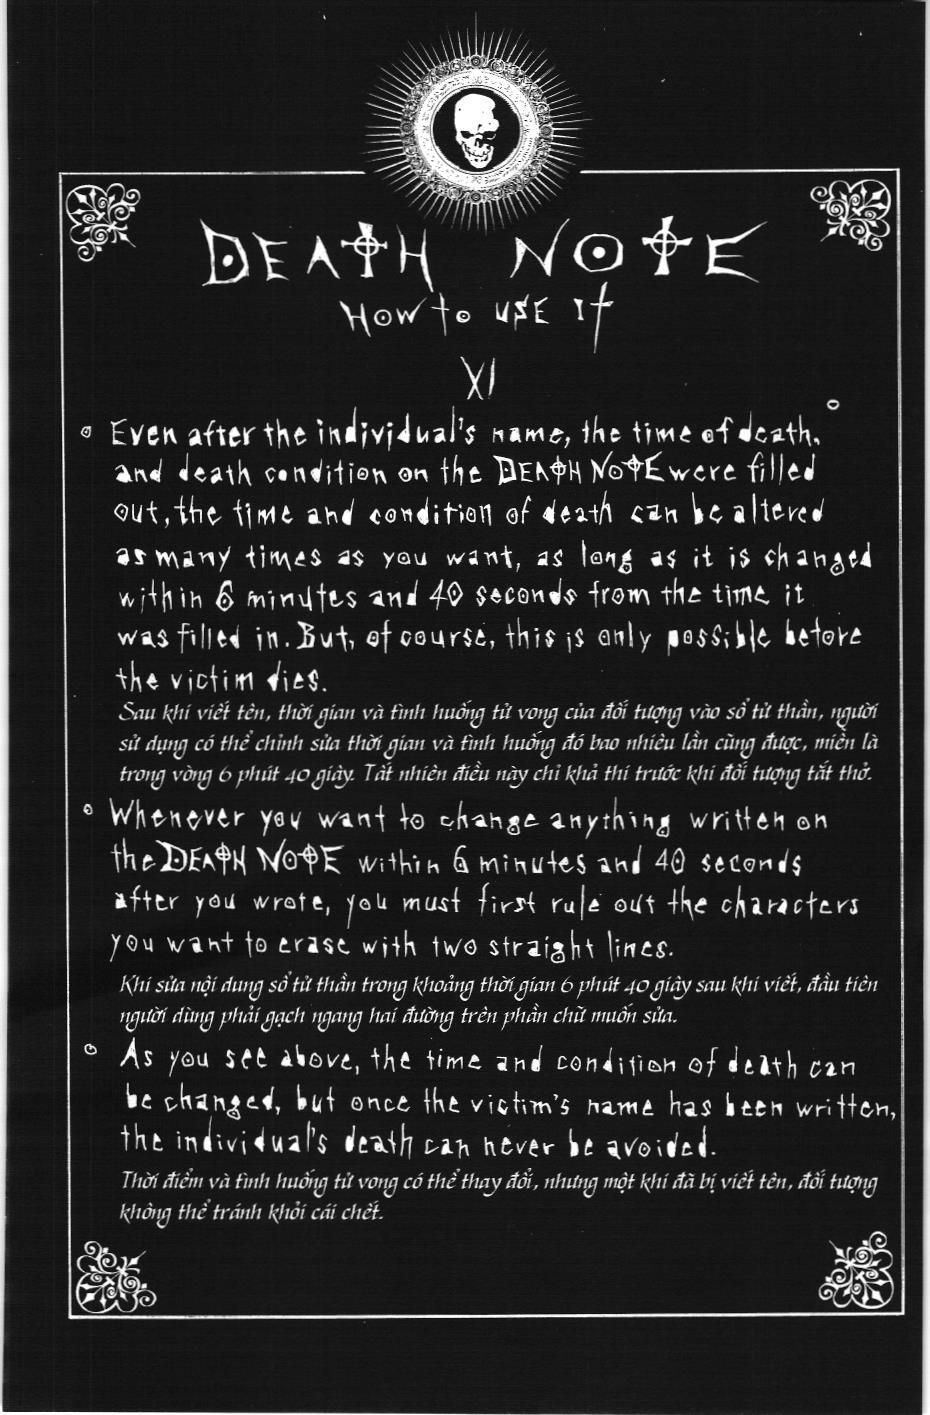 DEATH NOTE
HOW TO USE IT
XI
Even after the individual's name, the time of death,
and death condition on the DEATH NOTE were filled
out, the time and condition of death can be altered
as many times as you want, as long as it is changed
within 6 minutes and 40 seconds from the time it
was filled in. But, of course, this is only possible before
the victim dies.
Sau khi viết tên, thời gian và tình huống tử vong của đối tượng vào sổ tử thần, người
sử dụng có thể chỉnh sửa thời gian và tình huống đó bao nhiêu lần cũng được, miễn là
trong vòng 6 phút 40 giây. Tất nhiên điều này chỉ khả thi trước khi đối tượng tắt thở.
Whenever you want to change anything written on
the DEATH NOTE within 6 minutes and 40 seconds
after you wrote, you must first rule out the characters
you want to erase with two straight lines.
Khi sửa nội dung sổ tử thần trong khoảng thời gian 6 phút 40 giây sau khi viết, đầu tiên
người dùng phải gạch ngang hai đường trên phần chữ muốn sửa.
As you see above, the time and condition of death can
be changed, but once the victim's name has been written,
the individual's death can never be avoided.
Thời điểm và tình huống tử vong có thể thay đổi, nhưng một khi đã bị viết tên, đối tượng
không thể tránh khỏi cái chết.